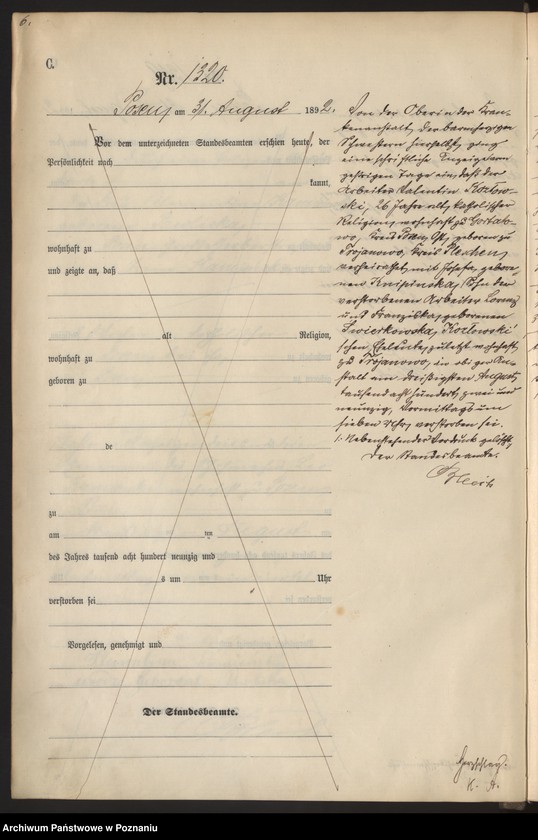 6.
C.
Nr. 1320.
Posen, am 31. August 1892.
Vor dem unterzeichneten Standesbeamten erschien heute, der
Persönlichkeit nach
kannt,
wohnhaft zu
und zeigte an, daß
alt Religion,
wohnhaft zu
geboren zu
de
zu
am ten
des Jahres tausend acht hundert neunzig und
s um Uhr
verstorben sei
Vorgelesen, genehmigt und
Der Standesbeamte.
Von der Oberin der Kran-
kenanstalt der barmherzigen
Schwestern hierselbst, ging
eine schriftliche Anzeige vom
gestrigen Tage ein, daß der
Arbeiter Valentin Kozlow-
ski, 26 Jahre alt, katholischer
Religion, wohnhaft zu
Kreis Posen Ost, geboren zu
Trojanowo, Kreis
verheirathet mit Josefa, gebore-
nen Sohn der
verstorbenen Arbeiter Lorenz
und Franziska, geborenen
Swierkowska, Kozlowski
schen Eheleute, zuletzt wohnhaft
zu Trojanowo, in obiger An-
stalt am dreißigsten August
tausend acht hundert zwei und
neunzig, Vormittags um
sieben Uhr, verstorben sei.
Nebenstehender Vordruck gelöscht.
Der Standesbeamte.
Archiwum Państwowe w Poznaniu